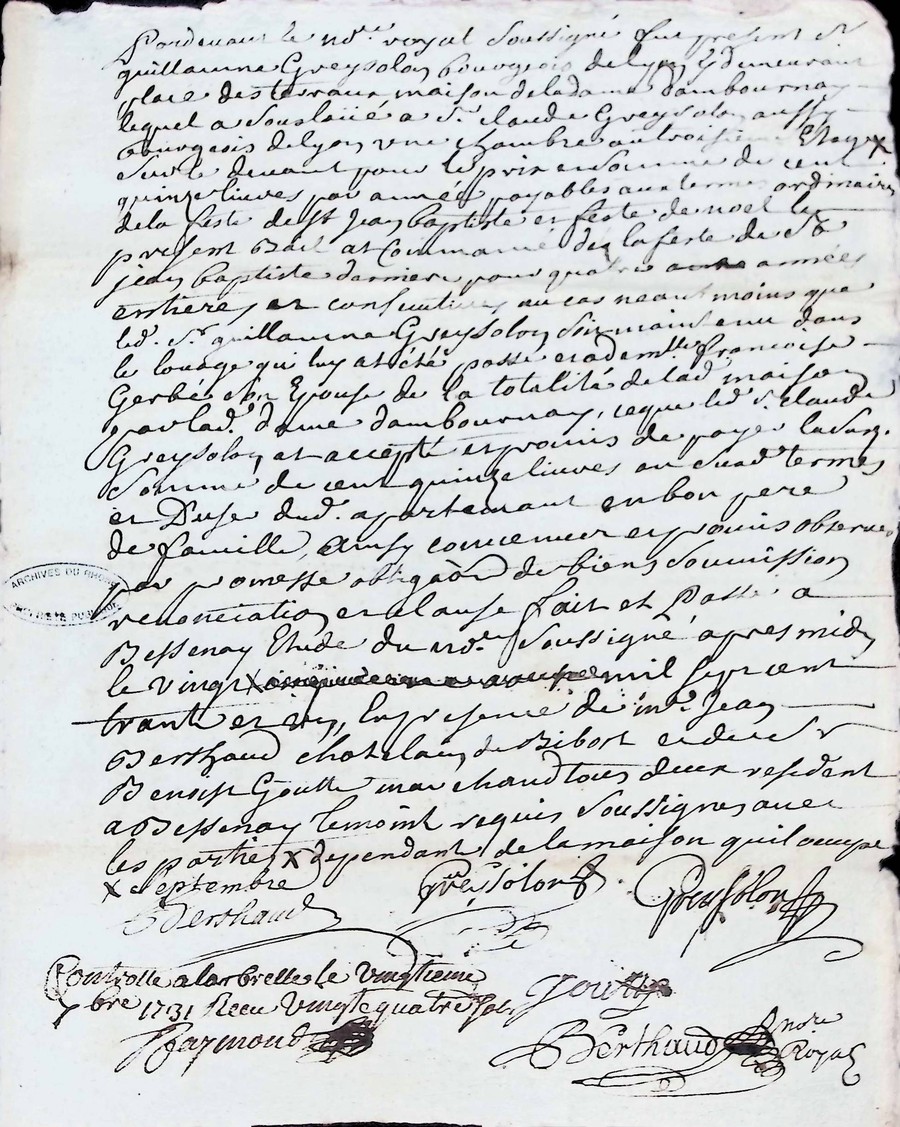 Pardevant le no.re royal Soussigné fut present Sr
guillaume Greysolon bourgeois de lyon y demeurant
place des terraux maison de la dame dambournay
lequel a Souslaüé a Sr. claude Greysolon aussy
bourgeois de lyon vne chambre au troisieme Etage X
Sur le devant pour le prix en Somme de cent
quinze liures par année payables aux termes ordinaires
de la feste de St Jean baptiste et feste de noel le
present Bail at Commancé des la feste de St
jean baptiste darniere pour quatre années
entieres et consecutiues, au cas neantmoins que
led. Sr. guillaume Greysolon Soit maintenu dans
le louage qui luy at été passé et a dem.lle francoise
Gerbé Son Epouse de la totalité de lad. maison
par lad. dame dambournay, ce que led. Sr. claude
Greysolon at accepté et promis de payer la Susd.
Somme de cent quinze liures au Susd. termes
et D'user dud. apartement en bon pere
de famille, ainsy conuenu et promis obseruer
par promesse obligaôn de biens Soumission
renonciation et clause fait et Passé a
Bessenay Etude du no.re Soussigné apres midy
le vingt X mil sept cent
trant et vn, En presence de mr. Jean
Berthaud chatelain de Bibost et de Sr
Benoist Goutte marchand tous deux resident
a Bessenay temoint requis Soussignes auec
les parties X dependant de la maison quil occupe
X Septembre
Berthaud Greysolon Greysolon
ARCHIVES DU RHONE
Controllé a larbrelle le vingtieme
7bre 1731 Receu vingt quatre Sols
Goutte
Raymond
Berthaud
no.re
Royal